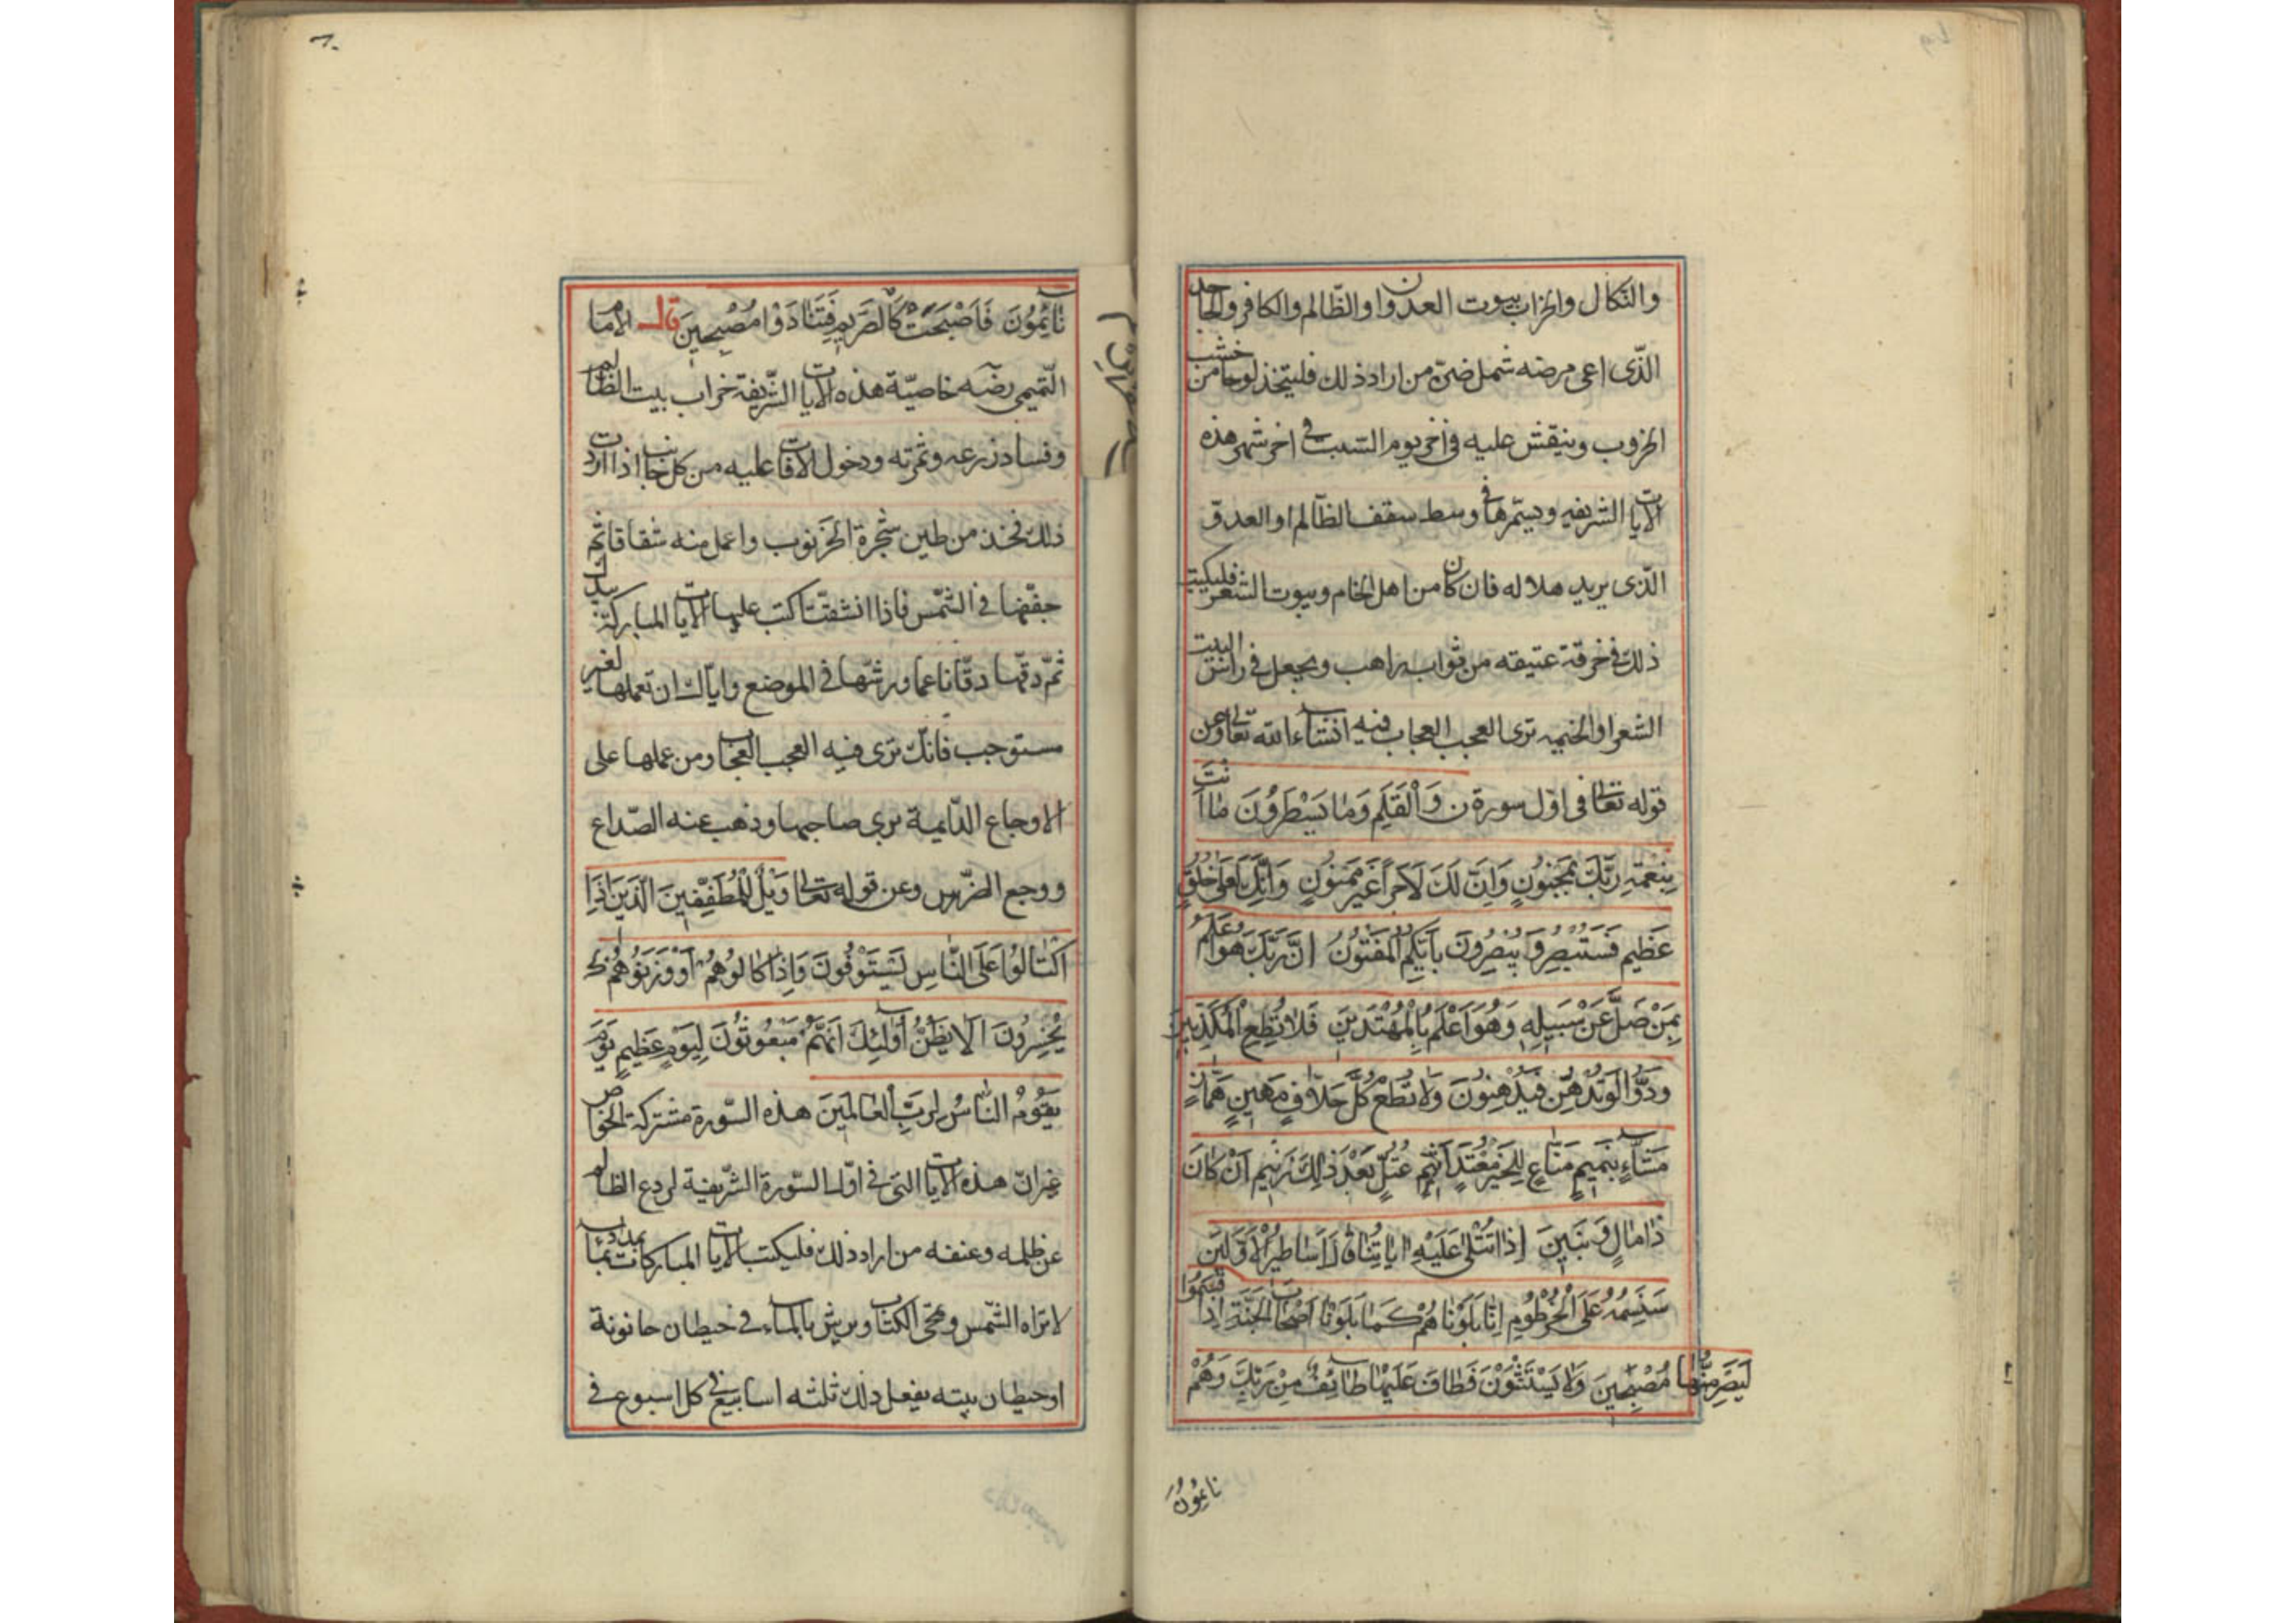 والنكال والخراب بيوت العدوان او الظالم والكافر والجاحد
الذى اعى مرضه شمل ضى من اراد ذلك فليتخذ لوحا من خشب
الخروب وينقش عليه فى اخر يوم السبت فى اخر شهر هذه
الايات الشريفه ويسمرها فى وسط سقف الظالم او العدو
الذى يريد هلاله فان كان من اهل الخام وبيوت الشعر فليكتب
ذلك فى خرقة عتيقه من ثواب راهب ويجعل فى راس البيت
الشعر او الخيمه ترى العجب العجاب فيه انشاء الله تعالى وعن
قوله تعالى فى اول سورة ن وَالْقَلَمِ وَمَا يَسْطُرُونَ مَا اَنْتَ
بِنِعْمَةِ رَبِّكَ بِمَجْنُونٍ وَاِنَّ لَكَ لَاَجْراً غَيْرَ مَمْنُونٍ وَاِنَّكَ لَعَلٰى خُلُقٍ
عَظِيمٍ فَسَتُبْصِرُ وَيُبْصِرُونَ بِاَيِّكُمُ الْمَفْتُونُ اِنَّ رَبَّكَ هُوَ اَعْلَمُ
بِمَنْ ضَلَّ عَنْ سَبِيلِهِ وَهُوَ اَعْلَمُ بِالْمُهْتَدِينَ فَلَا تُطِعِ الْمُكَذِّبِينَ
وَدُّوا لَوْ تُدْهِنُ فَيُدْهِنُونَ وَلَا تُطِعْ كُلَّ حَلَّافٍ مَهِينٍ هَمَّازٍ
مَشَّاءٍ بِنَمِيمٍ مَنَّاعٍ لِلْخَيْرِ مُعْتَدٍ اَثِيمٍ عُتُلٍّ بَعْدَ ذٰلِكَ زَنِيمٍ اَنْ كَانَ
ذَا مَالٍ وَبَنِينَ اِذَا تُتْلٰى عَلَيْهِ اٰيَاتُنَا قَالَ اَسَاطِيرُ الْاَوَّلِينَ
سَنَسِمُهُ عَلَى الْخُرْطُومِ اِنَّا بَلَوْنَاهُمْ كَمَا بَلَوْنَا اَصْحَابَ الْجَنَّةِ اِذْ اَقْسَمُوا
لَيَصْرِمُنَّهَا مُصْبِحِينَ وَلَا يَسْتَثْنُونَ فَطَافَ عَلَيْهَا طَائِفٌ مِنْ رَبِّكَ وَهُمْ
نَائِمُونَ
٦٠
نَائِمُونَ فَاَصْبَحَتْ كَالصَّرِيمِ فَتَنَادَوْا مُصْبِحِينَ قال الامام
التميمى رضه خاصية هذه الايات الشريفة خراب بيت الظالم
وفساد زرعه وثمرته ودخول الافات عليه من كل جانب اذا اردت
ذلك فخذ من طين شجرة الخرنوب واعمل منه شقاقا ثم
جففها فى الشمس فاذا انشفت اكتب عليها الايات المباركة
ثم دقها دقا ناعما ورشها فى الموضع واياك ان تعملها لغير
مستوجب فانك ترى فيه العجب العجاب ومن عملها على
الاوجاع الدايمية برى صاحبها وذهب عنه الصداع
ووجع الضرس وعن قوله تعالى وَيْلٌ لِلْمُطَفِّفِينَ الَّذِينَ اِذَا
اكْتَالُوا عَلَى النَّاسِ يَسْتَوْفُونَ وَاِذَا كَالُوهُمْ اَوْ وَزَنُوهُمْ
يُخْسِرُونَ اَلَا يَظُنُّ اُولٰئِكَ اَنَّهُمْ مَبْعُوثُونَ لِيَوْمٍ عَظِيمٍ يَوْمَ
يَقُومُ النَّاسُ لِرَبِّ الْعَالَمِينَ هذه السورة مشتركة الخواص
غير ان هذه الايات التى فى اول السورة الشريفة لردع الظالم
عن ظلمه وعنفه من اراد ذلك فليكتب الايات المباركات بمداد بماء
لا تراه الشمس ومحى الكتاب ويرش بالماء فى حيطان حانوتة
او حيطان بيته يفعل ذلك ثلثه اسابيع فى كل اسبوع فى